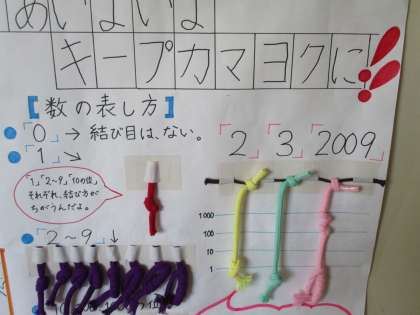 あいまいな
キープカマヨクに!!
【数の表し方】
「0」→ 結び目は、ない。
「1」→
"1"、「2~9」、「10の位」
それぞれ、結び方が
ちがうんだよ。
「2~9」↓
「2」「3」「2009」
1000
100
10
1